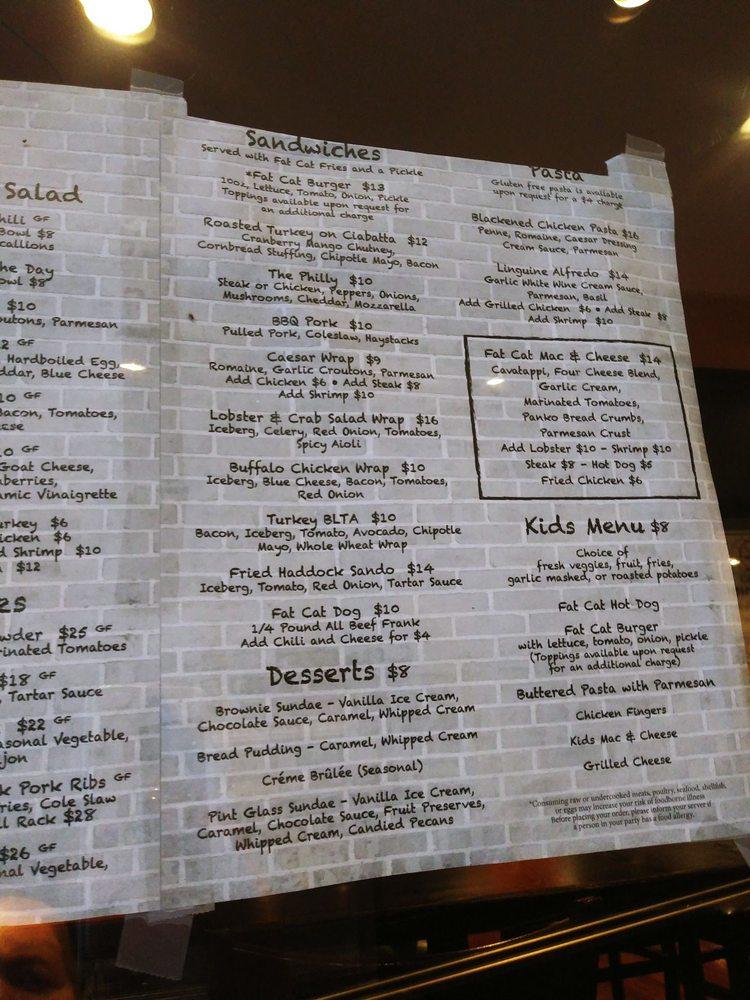 Salad
hili GF
Bowl $8
callions
he Day
owl $8
$10
outons, Parmesan
2 GF
Hardboiled Egg,
ddar, Blue Cheese
10 GF
Bacon, Tomatoes,
0 GF
Goat Cheese,
nberries,
amic Vinaigrette
urkey $6
icken $6
d Shrimp $10
$12
es
wder $25 GF
rinated Tomatoes
$18 GF
, Tartar Sauce
$22 GF
asonal Vegetable,
jon
k Pork Ribs GF
ries, Cole Slaw
ll Rack $28
$26 GF
nal Vegetable,
Sandwiches
Served with Fat Cat Fries and a Pickle
*Fat Cat Burger $13
10oz, Lettuce, Tomato, Onion, Pickle
Toppings available upon request for
an additional charge
Roasted Turkey on Ciabatta $12
Cranberry Mango Chutney,
Cornbread Stuffing, Chipotle Mayo, Bacon
The Philly $10
Steak or Chicken, Peppers, Onions,
Mushrooms, Cheddar, Mozzarella
BBQ Pork $10
Pulled Pork, Coleslaw, Haystacks
Caesar Wrap $9
Romaine, Garlic Croutons, Parmesan
Add Chicken $6 • Add Steak $8
Add Shrimp $10
Lobster & Crab Salad Wrap $16
Iceberg, Celery, Red Onion, Tomatoes,
Spicy Aioli
Buffalo Chicken Wrap $10
Iceberg, Blue Cheese, Bacon, Tomatoes,
Red Onion
Turkey BLTA $10
Bacon, Iceberg, Tomato, Avocado, Chipotle
Mayo, Whole Wheat Wrap
Fried Haddock Sando $14
Iceberg, Tomato, Red Onion, Tartar Sauce
Fat Cat Dog $10
1/4 Pound All Beef Frank
Add Chili and Cheese for $4
Desserts $8
Brownie Sundae - Vanilla Ice Cream,
Chocolate Sauce, Caramel, Whipped Cream
Bread Pudding - Caramel, Whipped Cream
Créme Brûlée (Seasonal)
Pint Glass Sundae - Vanilla Ice Cream,
Caramel, Chocolate Sauce, Fruit Preserves,
Whipped Cream, Candied Pecans
Pasta
Gluten free pasta is available
upon request for a $4 charge
Blackened Chicken Pasta $16
Penne, Romaine, Caesar Dressing
Cream Sauce, Parmesan
Linguine Alfredo $14
Garlic White Wine Cream Sauce,
Parmesan, Basil
Add Grilled Chicken $6 • Add Steak $8
Add Shrimp $10
Fat Cat Mac & Cheese $14
Cavatappi, Four Cheese Blend,
Garlic Cream,
Marinated Tomatoes,
Panko Bread Crumbs,
Parmesan Crust
Add Lobster $10 - Shrimp $10
Steak $8 - Hot Dog $5
Fried Chicken $6
Kids Menu $8
Choice of
fresh veggies, fruit, fries,
garlic mashed, or roasted potatoes
Fat Cat Hot Dog
Fat Cat Burger
with lettuce, tomato, onion, pickle
(Toppings available upon request
for an additional charge)
Buttered Pasta with Parmesan
Chicken Fingers
Kids Mac & Cheese
Grilled Cheese
*Consuming raw or undercooked meats, poultry, seafood, shellfish,
or eggs may increase your risk of foodborne illness
Before placing your order, please inform your server if
a person in your party has a food allergy.